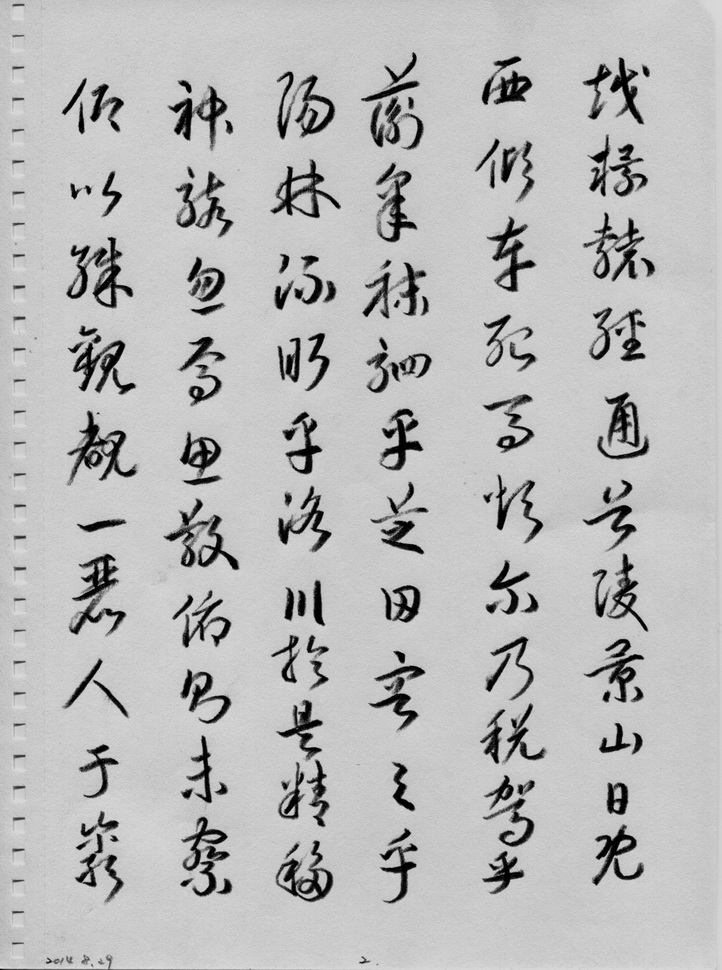 越轘轅經通谷陵景山日既
西傾車殆馬煩尔乃税駕乎
蘅皋秣駟乎芝田容与乎
陽林流眄乎洛川於是精移
神駭忽焉思散俯則未察
仰以殊觀覩一麗人于巖
2014 8.29
2.